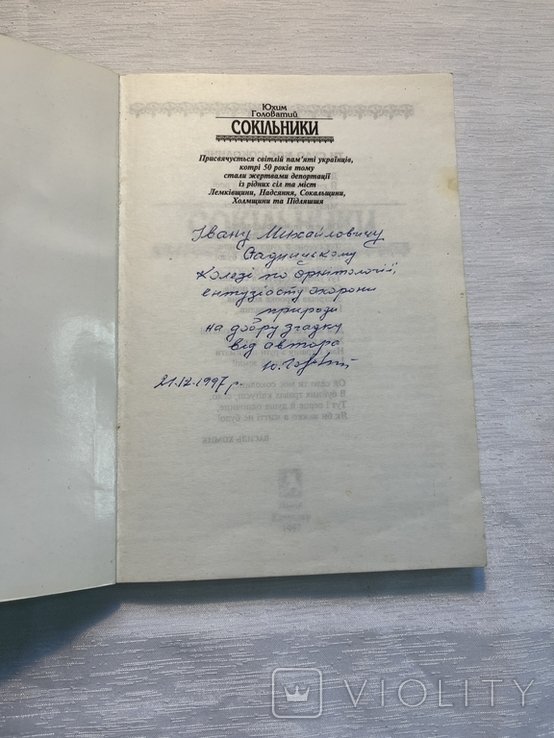 Юхим
Головатий
СОКІЛЬНИКИ
Присвячується світлій пам'яті українців,
котрі 50 років тому
стали жертвами депортації
із рідних сіл та міст
Лемківщини, Надсяння, Сокальщини,
Холмщини та Підляшшя
Івану Михайловичу
Колезі по орнітології,
ентузіасту охорони
природи
на добру згадку
від автора
21.12.1997 р.
ВАСИЛЬ ХОМИК
VIOLITY